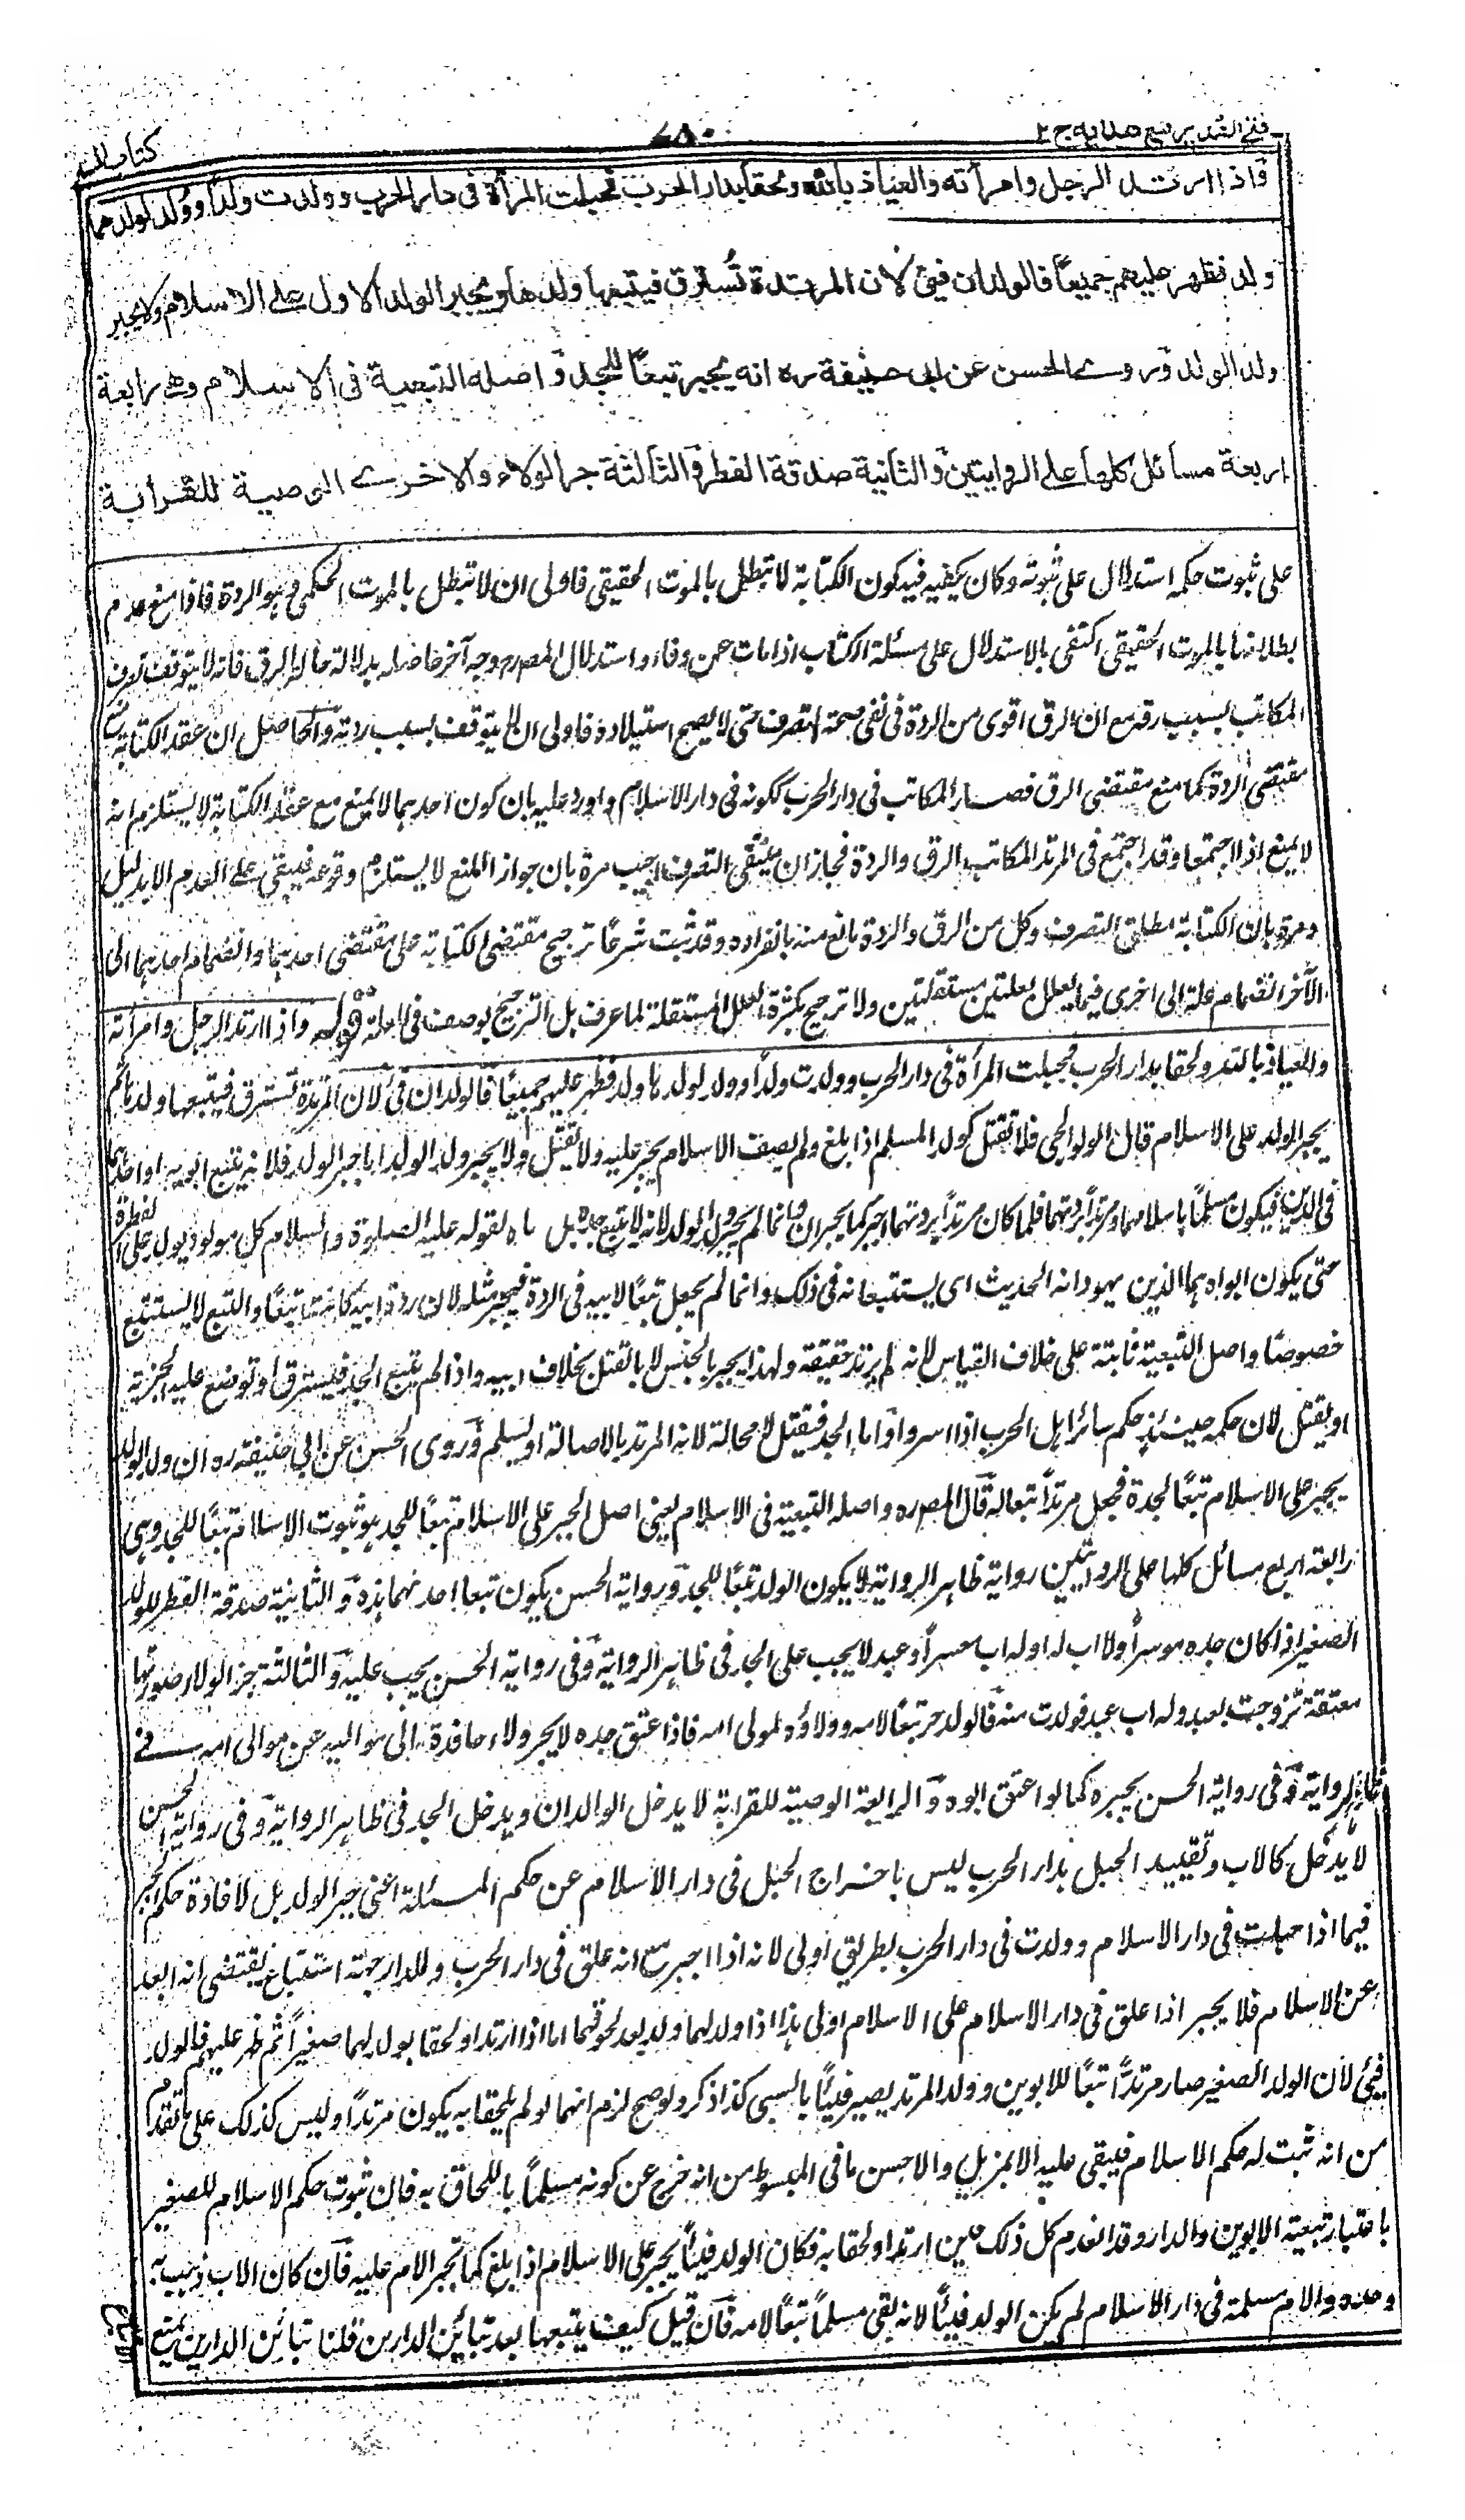 فتح القدير مع هدايه ج ٢
٧٨٠
كتاب السير
فاذا ارتد الرجل وامرأته والعياذ بالله ولحقا بدار الحرب فحبلت المرأة فى دار الحرب وولدت ولدا وولد لولدهما
ولد فظهر عليهم جميعًا فالولدان فئ لان المرتدة تُسترق فيتبعها ولدها ويجبر الولد الاول على الاسلام ولا يجبر
ولد الولد وروى الحسن عن ابى حنيفة ره انه يجبر تبعًا للجد واصله التبعية فى الاسلام وهى رابعة
اربعة مسائل كلها على الروايتين والثانية صدقة الفطر والثالثة جر الولاء والاخرى الوصية للقرابة
على ثبوت حكمه استدلال على ثبوته وكان يكفيه فيه كون الكتابة لا تبطل بالموت الحقيقى فاولى ان لا تبطل بالموت الحكمى وهو الردة فاذا منع عدم
بطلانها بالموت الحقيقى اكتفى بالاستدلال على مسئلة الكتاب اذا مات عن وفاء واستدلال المصره وجه آخر حاصله بدلالة حالة الرق فانه لا يتوقف تصرف
المكاتب بسبب رقه مع ان الرق اقوى من الردة فى نفى صحة التصرف حتى لا يصح استيلاده فاولى ان لا يتوقف بسبب ردته والحاصل ان عقد الكتابة منع
مقتضى الردة كما منع مقتضى الرق فصار المكاتب فى دار الحرب ككونه فى دار الاسلام واورد عليه بان كون احدهما لا يمنع مع عقد الكتابة لا يستلزم انه
لا يمنع اذا اجتمعا وقد اجتمع فى المرتد المكاتب الرق والردة فجاز ان ينتفى التصرف اجيب مرة بان جواز المنع لا يستلزم وقوعه فيبقى على العدم الا بدليل
ومرة بان الكتابة مطلق التصرف وكل من الرق والردة مانع منه بانفراده وقد ثبت شرعًا ترجيح مقتضى الكتابة على مقتضى احدهما وانضمام احدهما الى
الآخر انضمام علة الى اخرى فيما يعلل بعلتين مستقلتين ولا ترجيح بكثرة العلل المستقلة لما عرف بل الترجيح بوصف فى العلة قوله واذا ارتد الرجل وامرأته
والعياذ بالله ولحقا بدار الحرب فحبلت المرأة فى دار الحرب وولدت ولدًا وولد لولدهما ولد فظهر عليهم جميعًا فالولدان فئ لان المرتدة تسترق فيتبعها ولدها ثم
يجبر الولد على الاسلام قال الولوالجى فلا تقتل كولد المسلم اذا بلغ ولم يصف الاسلام يجبر عليه ولا يقتل ولا يجبر ولد الولد اما جبر الولد فلانه يتبع ابويه او احدهما
فى الدين فيكون مسلمًا باسلامهما ومرتدًا بردتهما فلما كان مرتدًا بردتهما اجبر كما يجبران وانما لم يجبر ولد الولد لانه لا يتبع جده بل اباه لقوله عليه الصلوة والسلام كل مولود يولد على الفطرة
حتى يكون ابواه هما الذين يهودانه الحديث اى يستتبعانه فى ذلك وانما لم يجعل تبعًا لابيه فى الردة فيجبر مثله لان ردة ابيه كانت تبعًا والتبع لا يستتبع
خصوصًا واصل التبعية ثابتة على خلاف القياس لانه لم يرتد حقيقة ولهذا يجبر بالحبس لا بالقتل بخلاف ابيه واذا لم يتبع الجد فيسترق او توضع عليه الجزية
او يقتل لان حكمه حينئذ حكم سائر اهل الحرب اذا اسروا واما الجد فيقتل لا محالة لانه المرتد بالاصالة او يسلم وروى الحسن عن ابى حنيفة ره ان ولد الولد
يجبر على الاسلام تبعًا لجده فجعل مرتدًا تبعا له قال المصره واصله التبعية فى الاسلام يعنى اصل الجبر على الاسلام تبعًا للجد هو ثبوت الاسلام تبعًا للجد وهى
رابعة اربع مسائل كلها على الروايتين رواية ظاهر الرواية لا يكون الولد تبعًا للجد ورواية الحسن يكون تبعا احدنها هذه والثانية صدقة الفطر للولد
الصغير اذا كان جده موسرًا ولا اب له او له اب معسر او عبد لا يجب على الجد فى ظاهر الرواية وفى رواية الحسن يجب عليه والثالثة جر الولاء صورتها
معتقة تزوجت بعبد وله اب عبد فولدت منه فالولد حر تبعًا لامه وولاؤه لمولى امه فاذا اعتق جده لا يجر ولاء حافده الى مواليه عن موالى امه فى
ظاهر الرواية وفى رواية الحسن يجره كما لو اعتق ابوه والرابعة الوصية للقرابة لا يدخل الوالدان ويدخل الجد فى ظاهر الرواية وفى رواية الحسن
لا يدخل كالاب وتقييد الحبل بدار الحرب ليس باخراج الحبل فى دار الاسلام عن حكم المسئلة اعنى جبر الولد بل لافادة حكم الجبر
فيما اذا حبلت فى دار الاسلام وولدت فى دار الحرب بطريق اولى لانه اذا اجبر مع انه علق فى دار الحرب وللدار جهة استتباع يقتضى انه ابعد
عن الاسلام فلا يجبر اذا علق فى دار الاسلام على الاسلام اولى هذا اذا ولد لهما ولد بعد لحوقهما اما اذا ارتدا ولحقا بولد لهما صغيرًا ثم ظهر عليهم فالولد
فئ لان الولد الصغير صار مرتدًا تبعًا للابوين وولد المرتد يصير فيئًا بالسبى كذا ذكر ولو صح لزم انهما لو لم يلحقا به يكون مرتدًا وليس كذلك على ما تقدم
من انه ثبت له حكم الاسلام فيبقى عليه الا بمزيل والاحسن ما فى المبسوط من انه خرج عن كونه مسلمًا باللحاق به فان ثبوت حكم الاسلام للصغير
باعتبار تبعية الابوين والدار وقد انعدم كل ذلك حين ارتدا ولحقا به فكان الولد فيئًا يجبر على الاسلام اذا بلغ كما تجبر الام عليه فان كان الاب ذهب به
وحده والام مسلمة فى دار الاسلام لم يكن الولد فيئًا لانه بقى مسلمًا تبعًا لامه فان قيل كيف يتبعها بعد تبائن الدارين قلنا تبائن الدارين يمنع